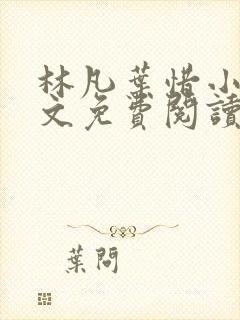 林凡葉惜小
文免費閱讀
葉問